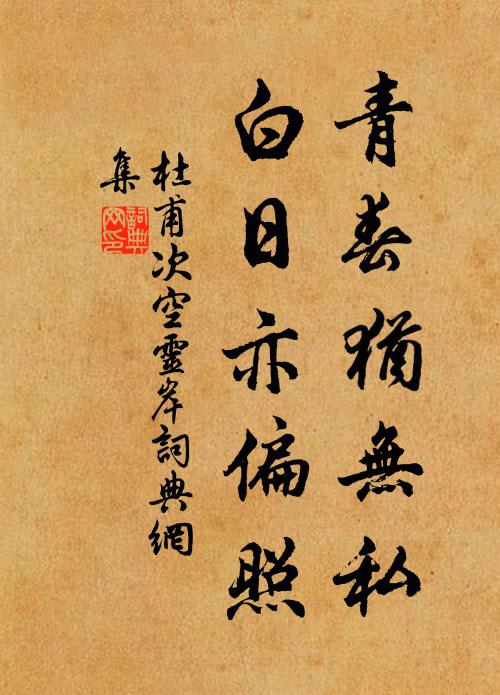 青春猶無私
白日亦偏照
杜甫次空靈岸詞典網
集
詞典
网印